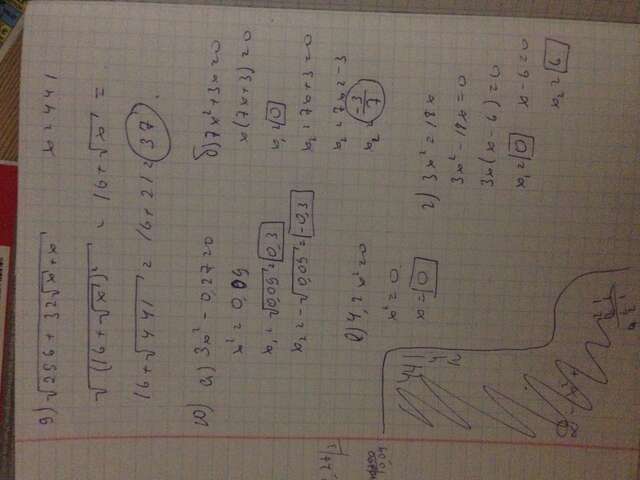 9) √256 + 32√x + x   x = 441
√(16 + √x)² = 16 + √x =
16 + √441 = 16 + 21 = 37
10) а) 3x² - 0,27 = 0
x² = 0,09
x₁ = √0,09 = 0,3
x₂ = -√0,09 = -0,3
б) 7x² + 3x = 0
x(7x + 3) = 0
x₁ = 0
x₂ = 7x + 3 = 0
x₂ = 7x = -3
x₂ = -3/7
в) 4,2x² = 0
x² = 0
x = 0
г) 3x² = 18x
3x² - 18x = 0
3x(x - 6) = 0
x₁ = 0   x - 6 = 0
x₂ = 6
441
0,09